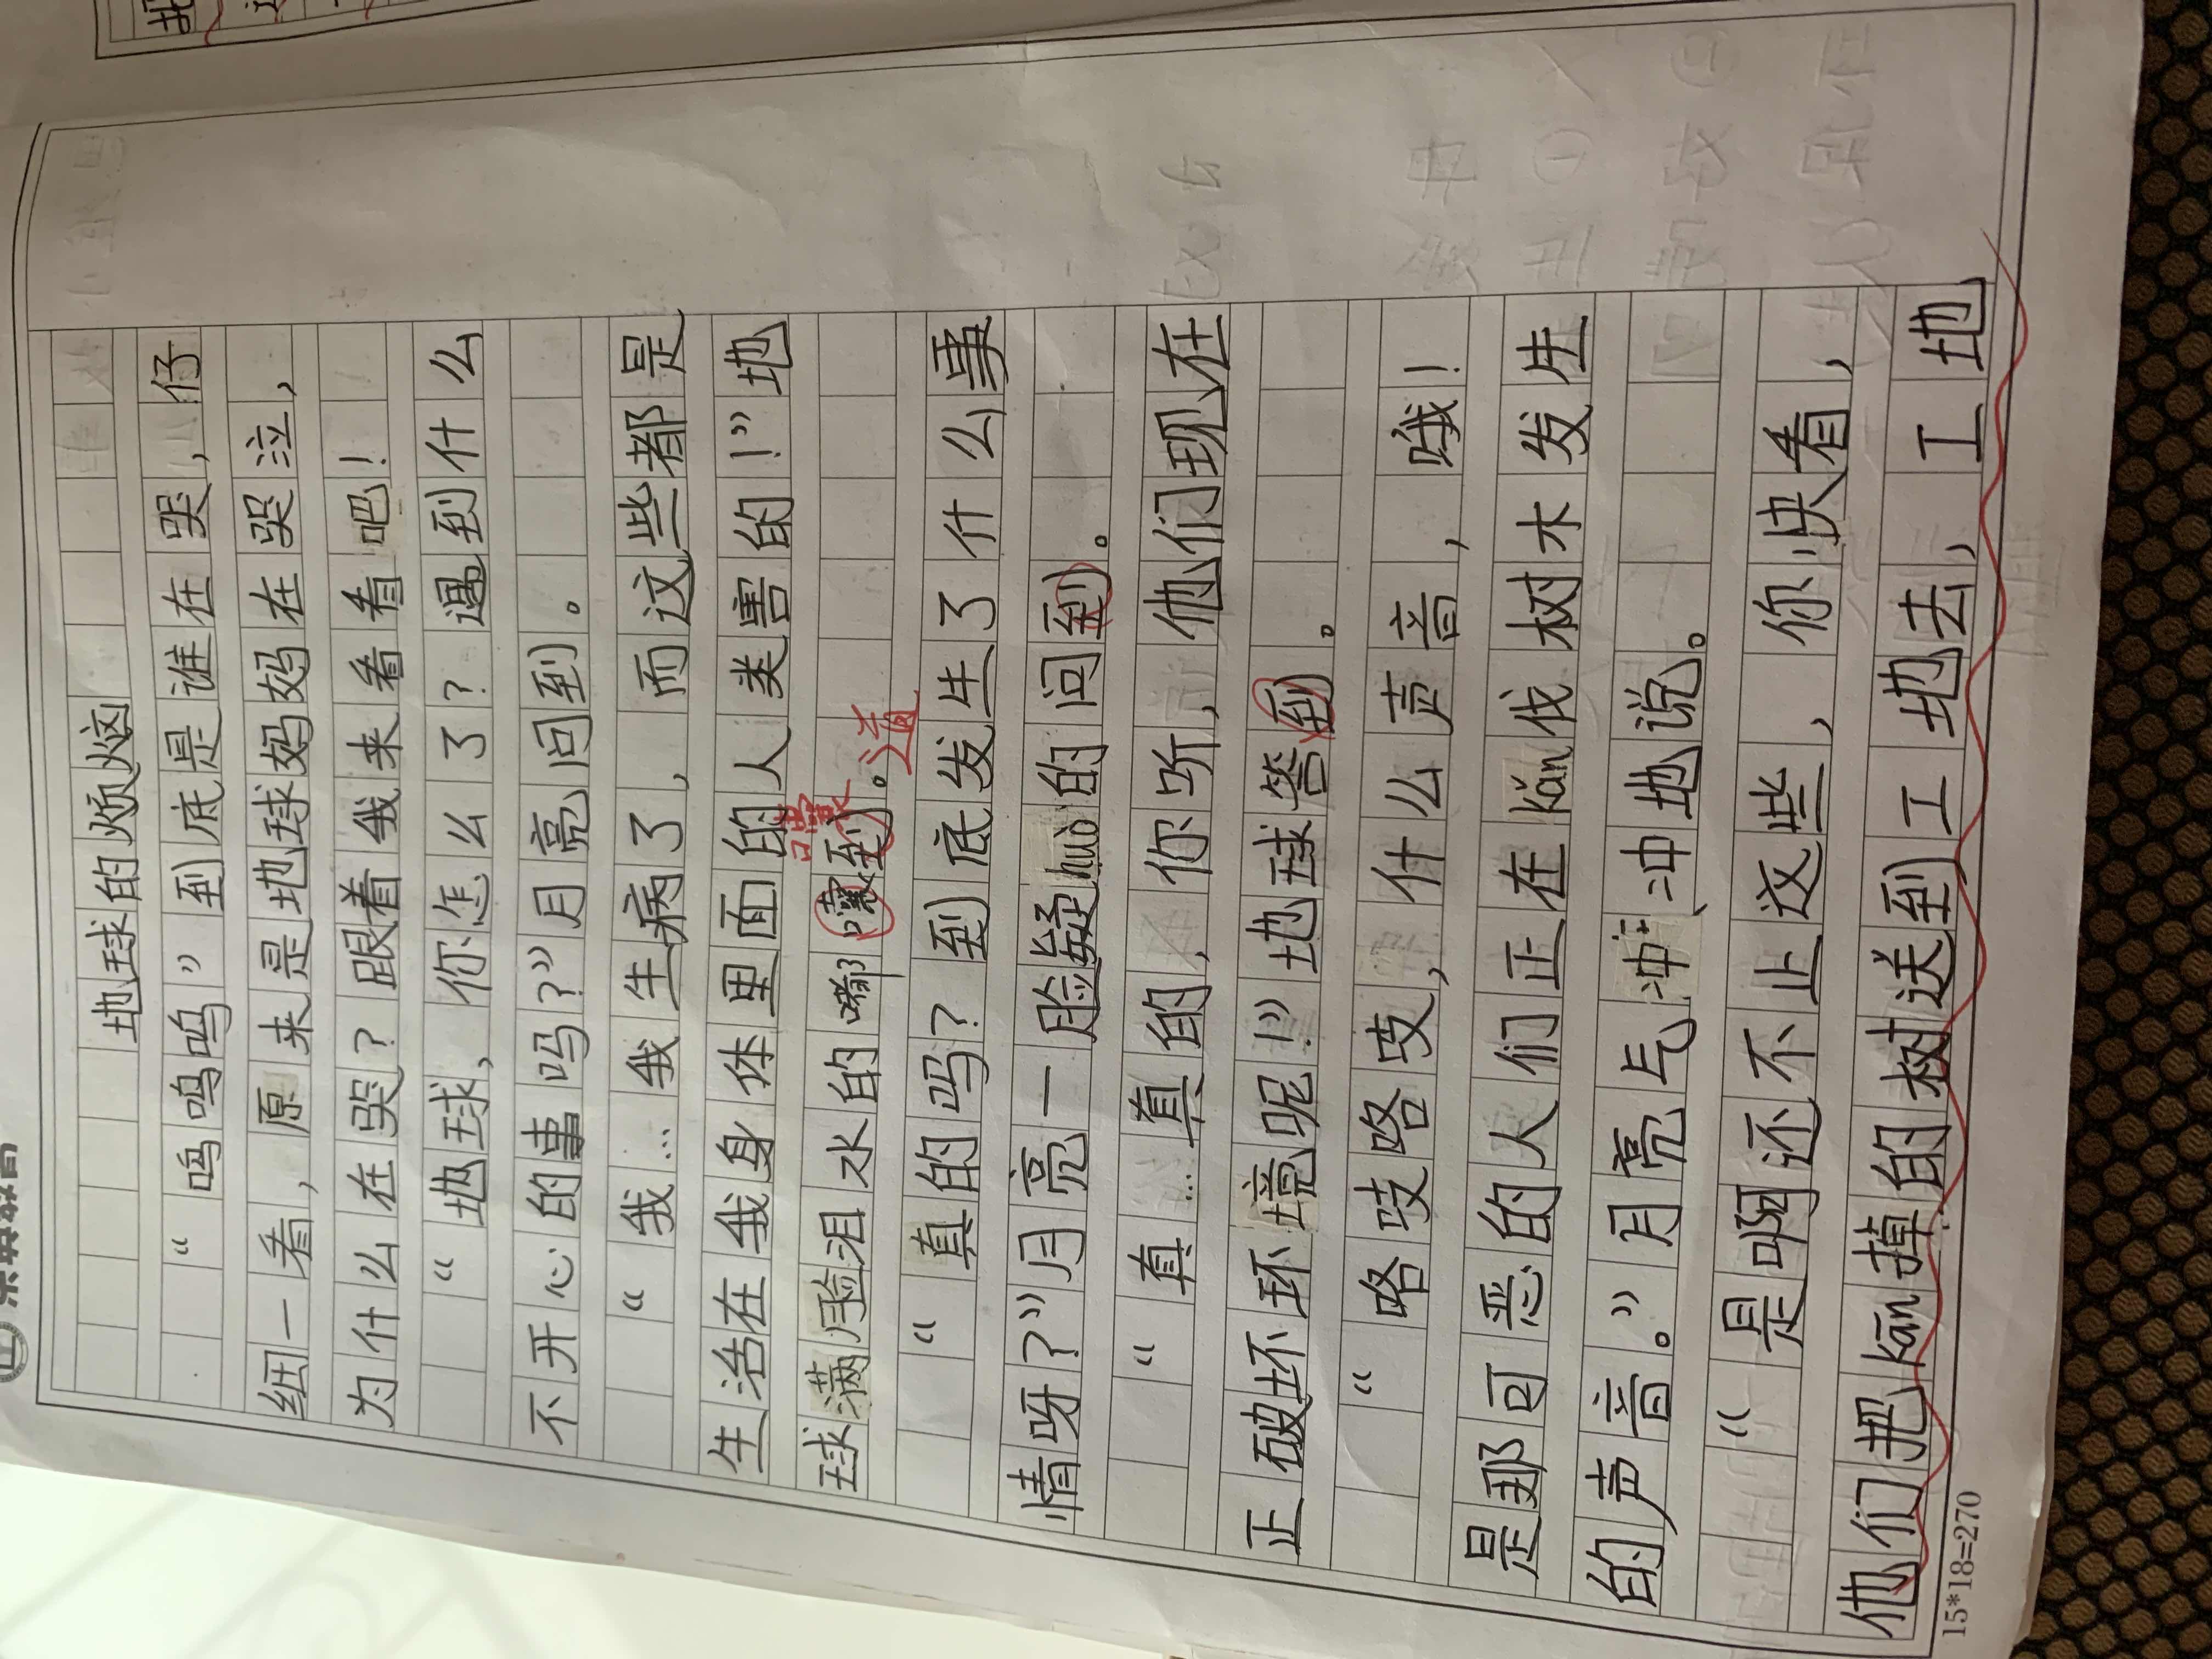 地球的烦恼
“呜呜呜”到底是谁在哭,仔
细一看,原来是地球妈妈在哭泣,
为什么在哭?跟着我来看看吧!
“地球,你怎么了?遇到什么
不开心的事吗?”月亮问到。
“我…我生病了,而这些都是
生活在我身体里面的人类害的!”地
球满脸泪水的嘟囔到。
嚷
道
“真的吗?到底发生了什么事
情呀?”月亮一脸疑huò的问到。
“真…真的,你听,他们现在
正破坏环境呢!”地球答到。
“咯吱咯吱,什么声音,哦!
是那可恶的人们正在kǎn伐树木发生
的声音。”月亮气冲冲地说。
“是啊还不止这些,你快看,
他们把kǎn掉的树送到工地去,工地
15*18=270